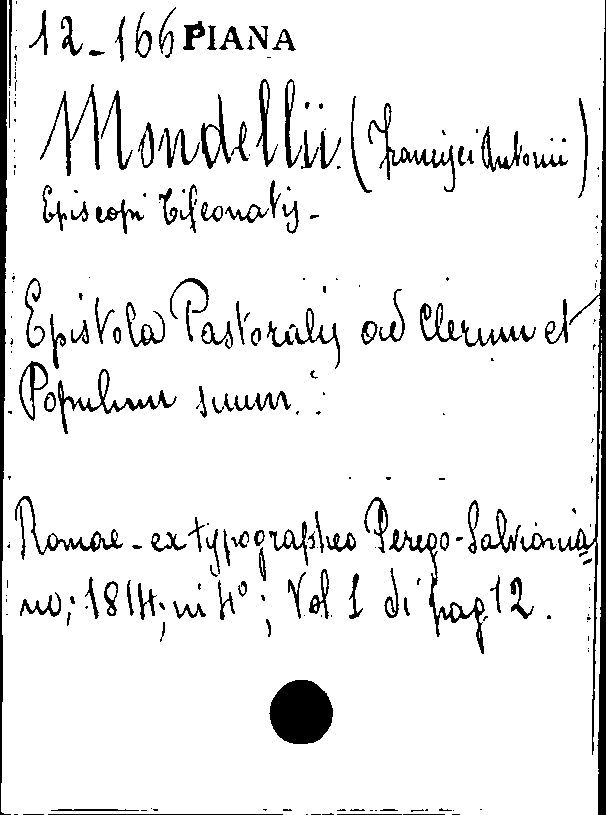 12-166 PIANA
Mondellii (Francisci Antonii)
Episcopi Cifeonatis -
Epistola Pastoralis ad Clerum et
Populum suum.
Romae - ex typographeo Perego-Salvionia
no; 1814; in 4°; Vol 1 di pag. 12.